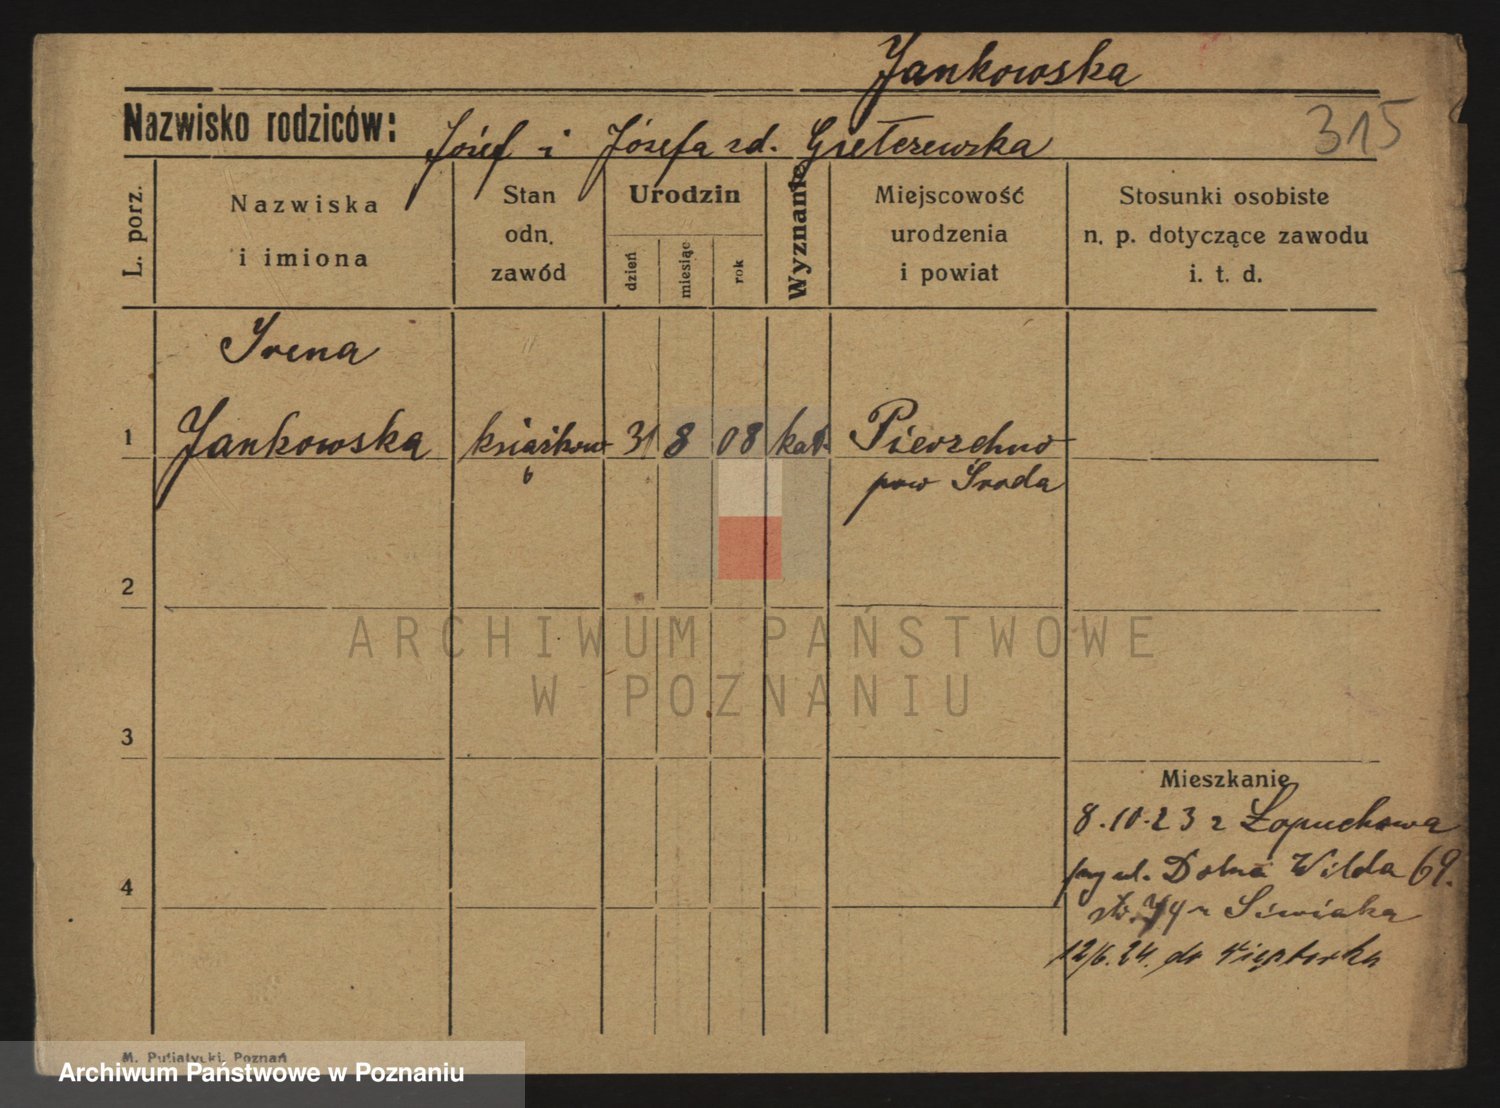 Jankowska
Nazwisko rodziców: Józef i Józefa zd. Giełczewska
315
L. porz.
Nazwiska
i imiona
Stan
odn.
zawód
Urodzin
dzień
miesiąc
rok
Wyznanie
Miejscowość
urodzenia
i powiat
Stosunki osobiste
n. p. dotyczące zawodu
i. t. d.
Irena
1 Jankowska 31 8 08 kat. Pierzchno
pow Środa
2
ARCHIWUM PAŃSTWOWE
W POZNANIU
3
Mieszkanie
8.10.23 z Łopuchowa
ul. Dolna Wilda 69.
Siwiaka
12/6.24. do
4
M. Putiatycki, Poznań
Archiwum Państwowe w Poznaniu